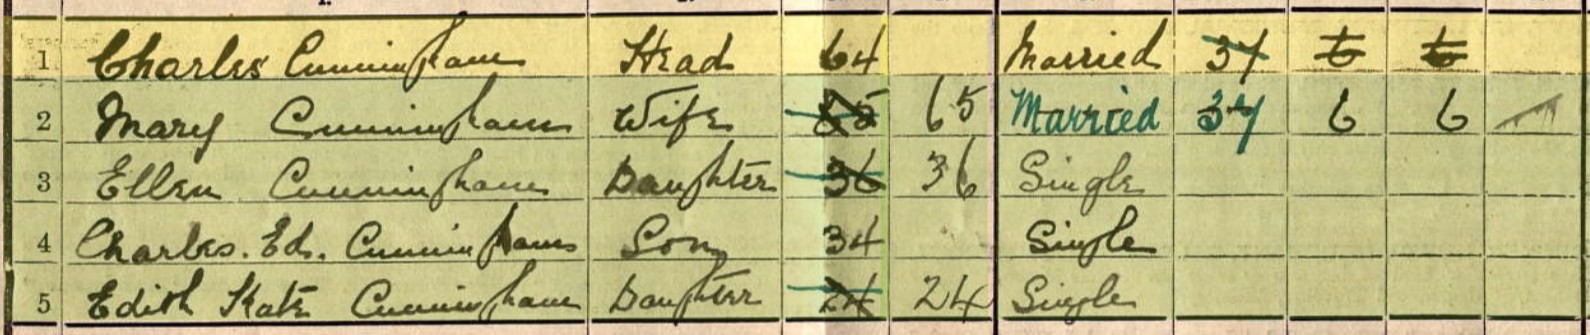 1 Charles Cunningham Head 64 Married 37 6 6
2 Mary Cunningham Wife 65 65 Married 37 6 6
3 Ellen Cunningham Daughter 36 36 Single
4 Charles. Ed. Cunningham Son 34 Single
5 Edith Kate Cunningham Daughter 24 24 Single